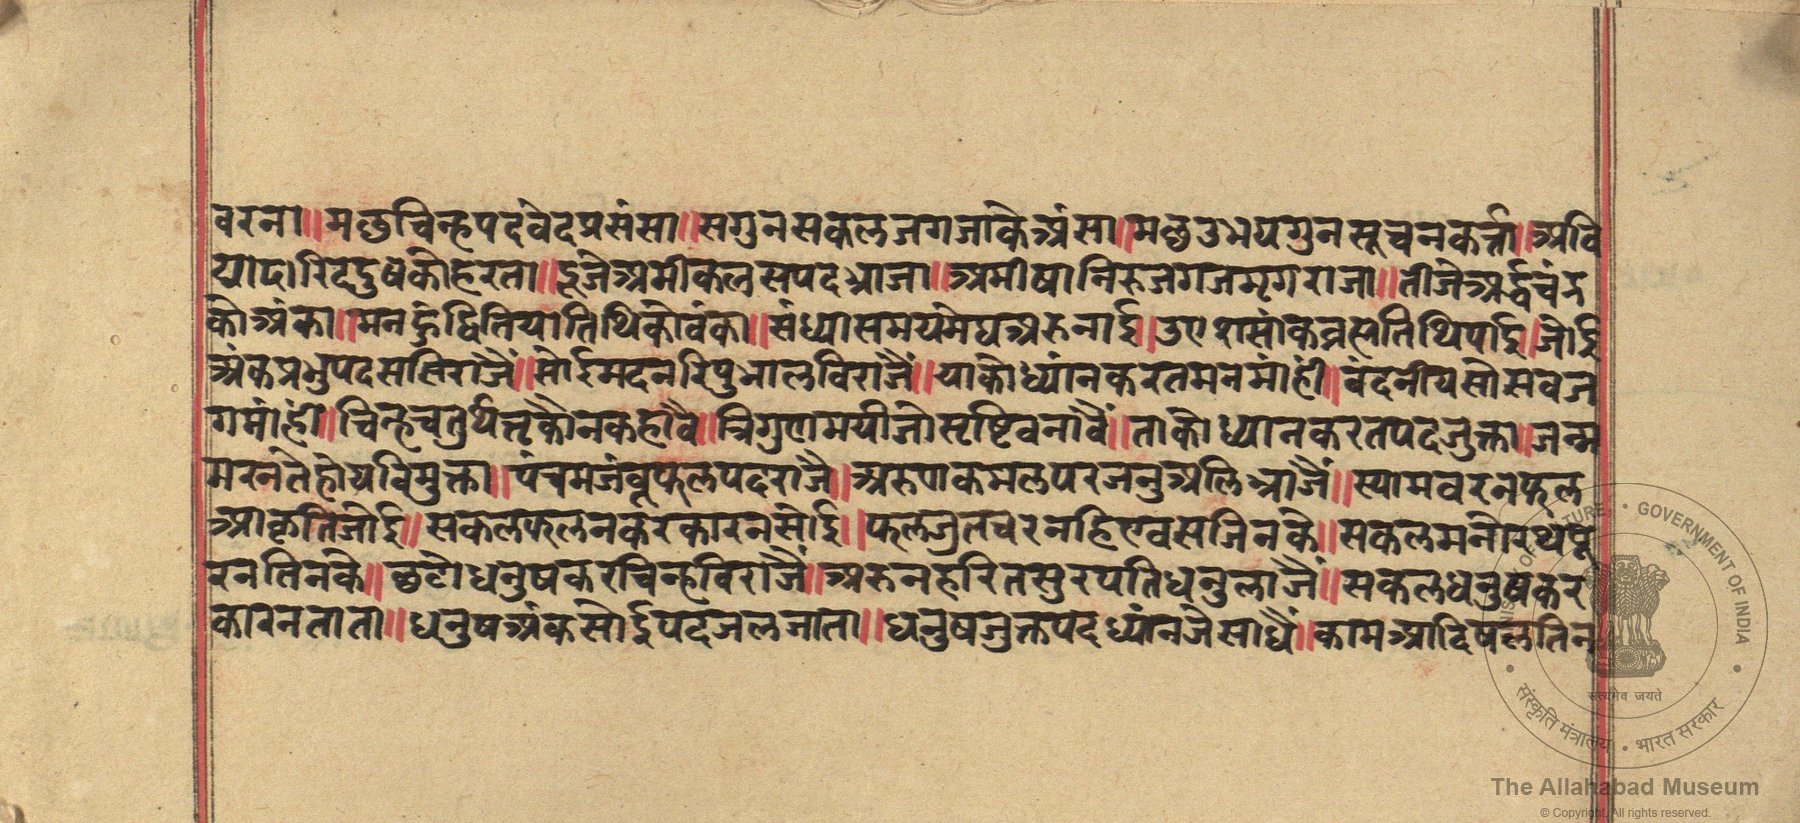 वरना॥मछचिन्हपदवेदप्रसंसा॥सगुनसकलजगजाकेअंसा॥मछउभयगुनसूचनकर्त्रा॥अवि
यादारिददुषकौहरता॥दूजेअमीकलसपदभ्राजा॥अमीषानिरुजगजमृगराजा॥तीजेअर्द्धचंद्र
कोअंका॥मनहुंद्वितियातिथिकोवंका॥संध्यासमयमेघअरुनाई॥उए शसांकतिथिपाई॥जोई
अंकप्रभुपदससिराजैं॥सोईमदनरिपुभालविराजैं॥याकौध्यांनकरतमनमांहीं॥वंदनीयसोसवज
गमांहीं॥चिन्हचतुर्थत्तृकौनकहावै॥त्रिगुणमयीजोसृष्टिवनांवैं॥ताकोध्यानकरतपदजुक्ता॥जन्म
मरनतेहोयविमुक्ता॥पंचमजंवूफलपदराजै॥अरुणकमलपरजनुअलिभ्राजैं॥स्यामवरनफल
आकृतिजोई॥सकलफलनकरकारनसोई॥फलजुतचरनहिएवसजिनके॥सकलमनोरथपू
रनतिनके॥छठोधनुषकरचिन्हविराजैं॥अरुनहरितसुरपतिधनुलाजैं॥सकलधनुषकर
कारनताता॥धनुषअंकसोईपदजलजाता॥धनुषजुक्तपदध्यांनजेसाधैं॥कामआदिषलतिन
The Allahabad Museum
© Copyright, All rights reserved.
MINISTRY OF CULTURE • GOVERNMENT OF INDIA
सत्यमेव जयते
संस्कृति मंत्रालय • भारत सरकार